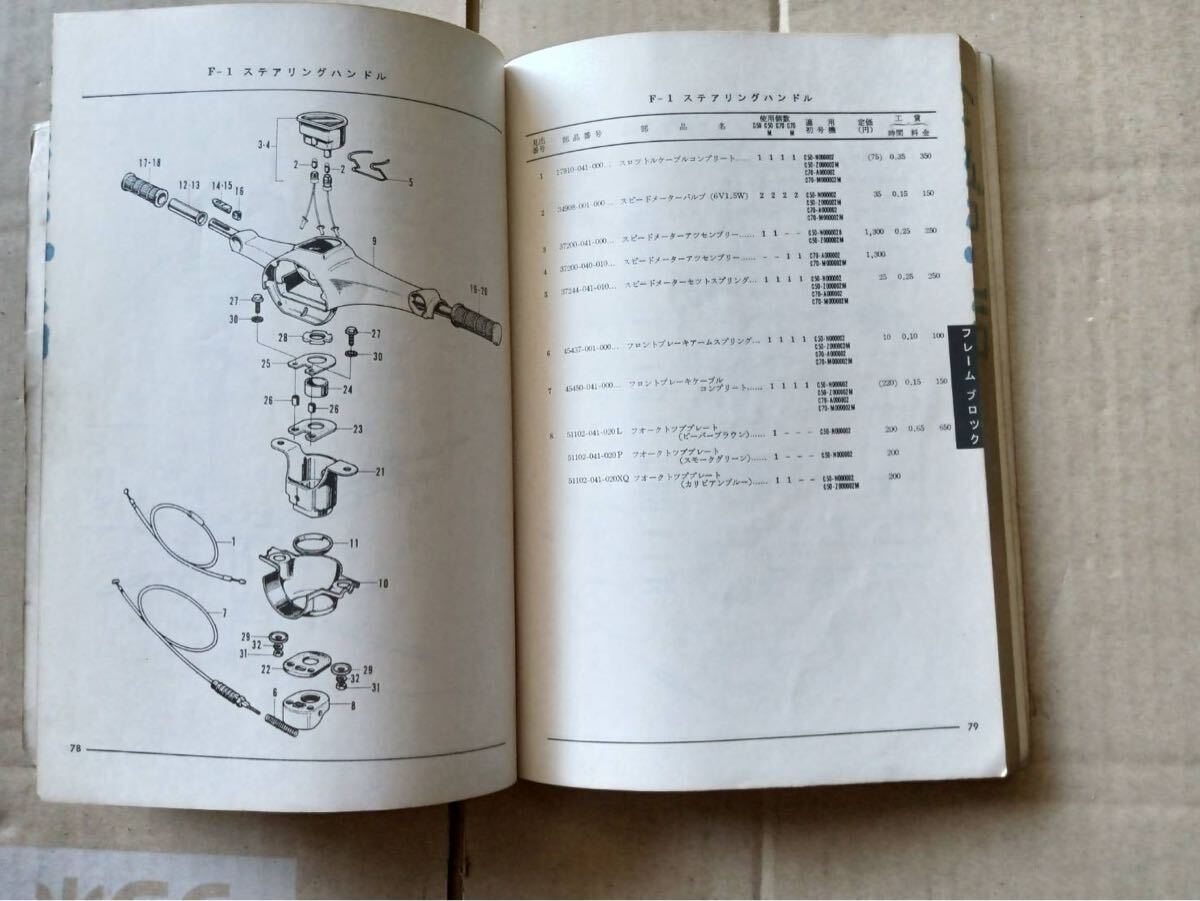 F-1 ステアリングハンドル
17-18
12-13
14-15
16
3-4
2
2
5
9
19-20
27
30
28
27
30
25
24
26
26
23
21
1
11
10
7
29
32
31
22
29
32
31
6
8
78
F-1 ステアリングハンドル
見出番号 部品番号 部品名 使用個数 C50 C50M C70 C70M 適用初号機 定価(円) 工賃 時間 料金
1 17910-041-000… スロツトルケーブルコンプリート…… 1 1 1 1 C50-N000002 (75) 0.35 350
C50-Z000002M
C70-A000002
C70-M000002M
2 34908-001-000… スピードメーターバルブ (6V1.5W) 2 2 2 2 C50-N000002 35 0.15 150
C50-Z000002M
C70-A000002
C70-M000002M
3 37200-041-000… スピードメーターアツセンブリー…… 1 1 - - C50-N000002 1,300 0.25 250
C50-Z000002M
4 37200-040-010… スピードメーターアツセンブリー…… - - 1 1 C70-A000002 1,300
C70-M000002M
5 37244-041-010… スピードメーターセツトスプリング… 1 1 1 1 C50-N000002 25 0.25 250
C50-Z000002M
C70-A000002
C70-M000002M
6 45437-001-000… フロントブレーキアームスプリング… 1 1 1 1 C50-N000002 10 0.10 100
C50-Z000002M
C70-A000002
C70-M000002M
7 45450-041-000… フロントブレーキケーブル
コンプリート…… 1 1 1 1 C50-N000002 (220) 0.15 150
C50-Z000002M
C70-A000002
C70-M000002M
8 51102-041-020L フオークトツププレート
(ビーバーブラウン)…… 1 - - - C50-N000002 200 0.65 650
51102-041-020P フオークトツププレート
(スモークグリーン)…… 1 - - - C50-N000002 200
51102-041-020XQ フオークトツププレート
(カリビアンブルー)…… 1 1 - - C50-N000002 200
C50-Z000002M
フレーム ブロツク
79